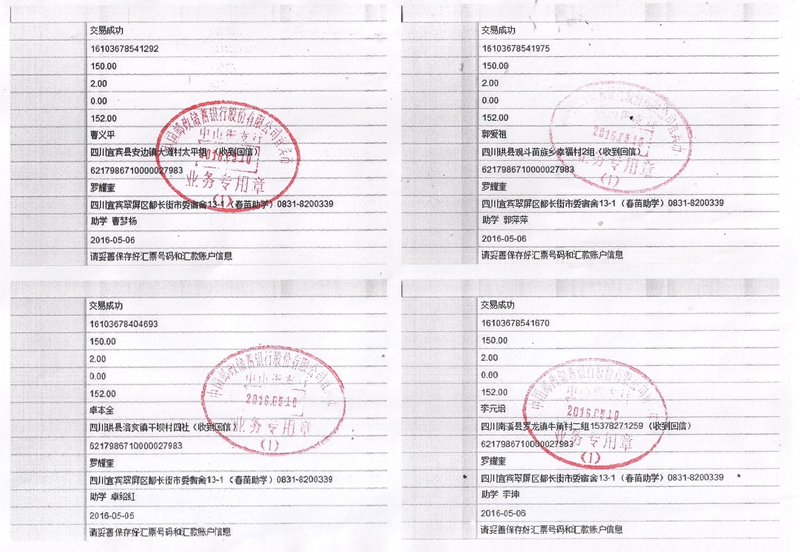 交易成功
16103678541292
150.00
2.00
0.00
152.00
曹义平
四川宜宾县安边镇大滩村太平组（收到回信）
6217986710000027983
罗耀奎
四川宜宾翠屏区都长街市委宿舍13-1（春苗助学）0831-8200339
助学 曹梦杨
2016-05-06
请妥善保存好汇票号码和汇款账户信息
2016.05.10
业务专用章
（1）
交易成功
16103678541975
150.00
2.00
0.00
152.00
郭爱祖
四川珙县观斗苗族乡幸福村2组（收到回信）
6217986710000027983
罗耀奎
四川宜宾翠屏区都长街市委宿舍13-1（春苗助学）0831-8200339
助学 郭萍萍
2016-05-06
请妥善保存好汇票号码和汇款账户信息
2016.05.10
业务专用章
（1）
交易成功
16103678404693
150.00
2.00
0.00
152.00
卓本全
四川珙县洛亥镇干坝村四社（收到回信）
6217986710000027983
罗耀奎
四川宜宾翠屏区都长街市委宿舍13-1（春苗助学）0831-8200339
助学 卓绍红
2016-05-05
请妥善保存好汇票号码和汇款账户信息
2016.05.10
业务专用章
（1）
交易成功
16103678541670
150.00
2.00
0.00
152.00
李元培
四川南溪县罗龙镇牛角村二组15378271259（收到回信）
6217986710000027983
罗耀奎
四川宜宾翠屏区都长街市委宿舍13-1（春苗助学）0831-8200339
助学 李坤
2016-05-06
请妥善保存好汇票号码和汇款账户信息
2016.05.10
业务专用章
（1）